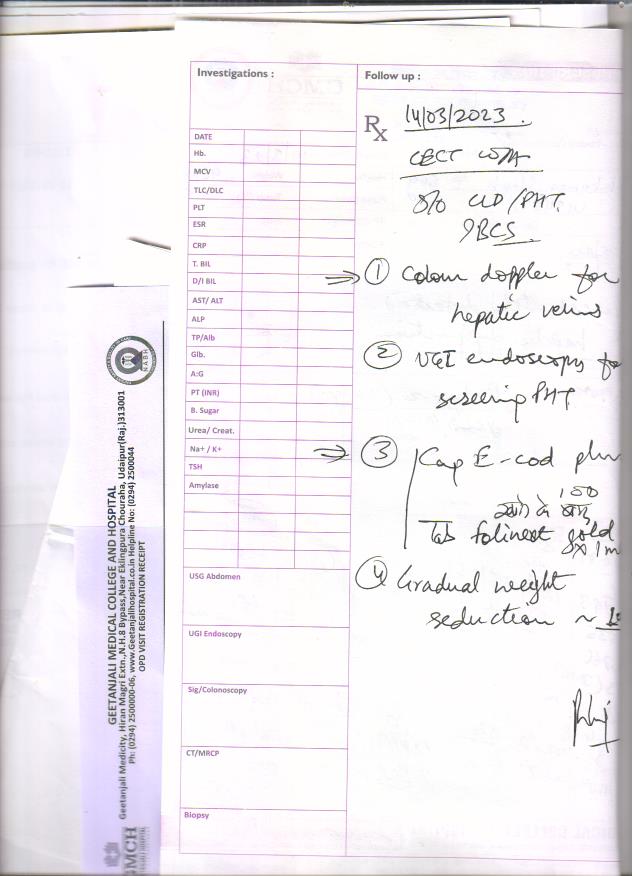 Investigations :
DATE
Hb.
MCV
TLC/DLC
PLT
ESR
CRP
T. BIL
D/I BIL
AST/ ALT
ALP
TP/Alb
Glb.
A:G
PT (INR)
B. Sugar
Urea/ Creat.
Na+ / K+
TSH
Amylase
USG Abdomen
UGI Endoscopy
Sig/Colonoscopy
CT/MRCP
Biopsy
Follow up :
Rx
14/03/2023.
CECT
S/o CLD/PHT
?BCS
⇒ ① Colour doppler for
hepatic veins
② UGI endoscopy fo
screening PHT
⇒ ③ Cap E-cod plus
100
Tab folinext gold
④ Gradual weight
reduction ~
GEETANJALI MEDICAL COLLEGE AND HOSPITAL
Geetanjali Medicity, Hiran Magri Extn.,N.H.8 Bypass,Near Eklingpura Chouraha, Udaipur(Raj.)313001
Ph: (0294) 2500000-06, www.Geetanjalihospital.co.in Helpline No: (0294) 2500044
OPD VISIT REGISTRATION RECEIPT
NABH
GMCH